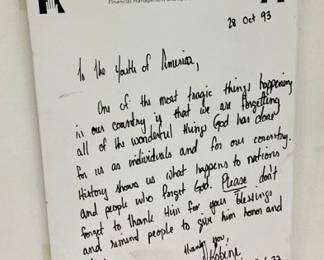 Financial Management
28 Oct 93
To the Youth of America,
One of the most tragic things happening
in our country is that we are forgetting
all of the wonderful things God has done
for us as individuals and for our country.
History shows us what happens to nations
and people who forget God. Please don't
forget to thank Him for your blessings
and remind people to give him honor and
thank you,